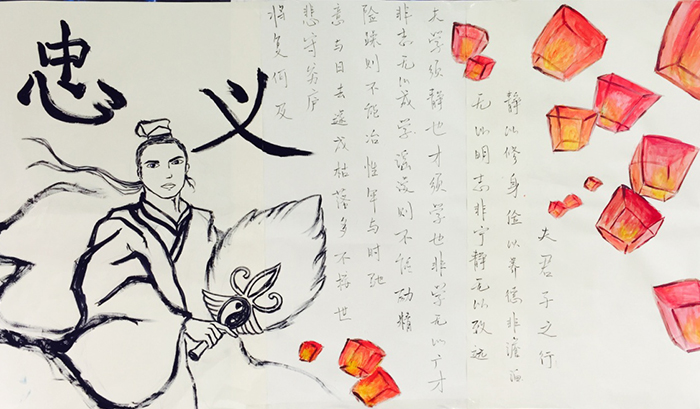 忠义
夫君子之行
静以修身俭以养德非澹泊
无以明志非宁静无以致远
夫学须静也才须学也非学无以广才
非志无以成学淫漫则不能励精
险躁则不能治性年与时驰
意与日去遂成枯落多不接世
悲守穷庐
将复何及